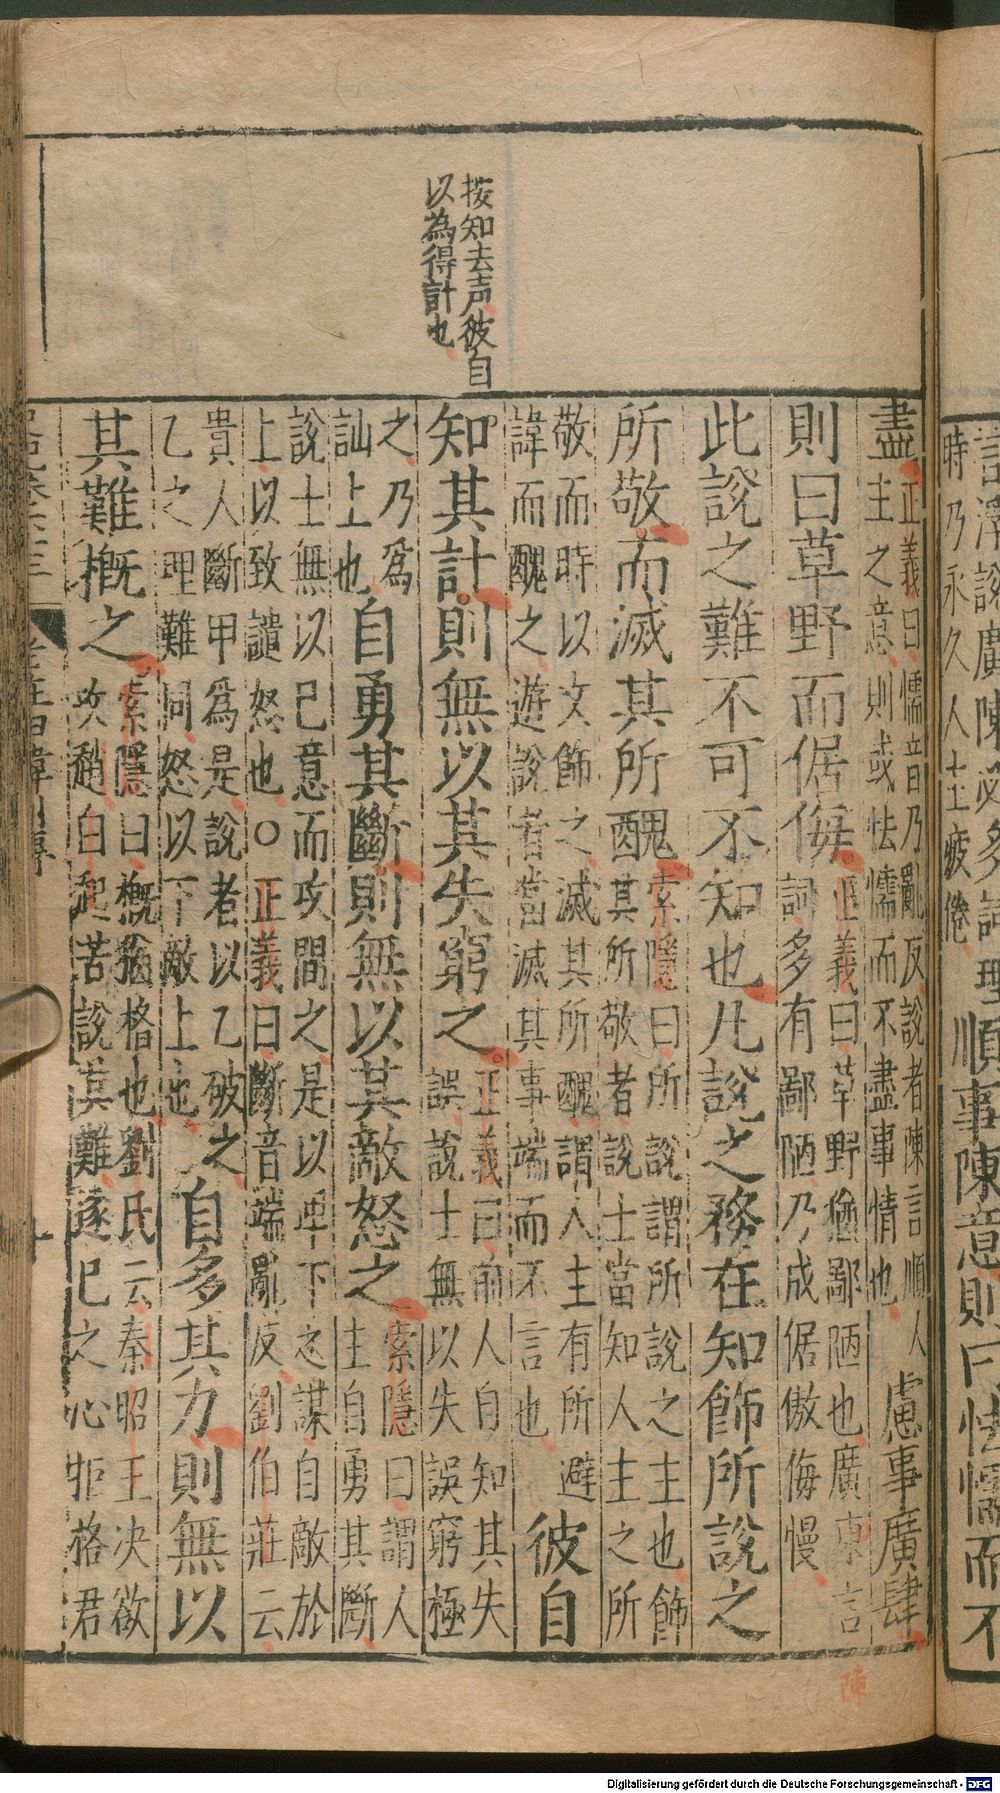 按知去声彼自
以為得計也
盡正義曰懦音乃亂反說者陳言順人
主之意則或怯懦而不盡事情也慮事廣肆
則曰草野而倨侮正義曰草野猶鄙陋也廣東言
詞多有鄙陋乃成倨傲侮慢
此說之難不可不知也凡說之務在知飾所說之
所敬而滅其所醜索隱曰所說謂所說之主也飾
其所敬者說士當知人主之所
敬而時以文飾之滅其所醜謂人主有所避
諱而醜之遊說者當滅其事端而不言也彼自
知其計則無以其失窮之正義曰前人自知其失
誤說士無以失誤窮極
之乃為
訕上也自勇其斷則無以其敵怒之索隱曰謂人
主自勇其斷
說士無以己意而攻間之是以卑下之謀自敵於
上以致譴怒也○正義曰斷音端亂反劉伯莊云
貴人斷甲為是說者以乙破之
乙之理難同怒以下敵上也自多其力則無以
其難概之索隱曰概猶格也劉氏云秦昭王決欲
攻趙白起苦說其難遂己之心拒格君
陳
言浮說廣陳必多詞理
時乃永久人主疲倦順事陳意則曰怯懦而不
Digitalisierung gefördert durch die Deutsche Forschungsgemeinschaft - DFG